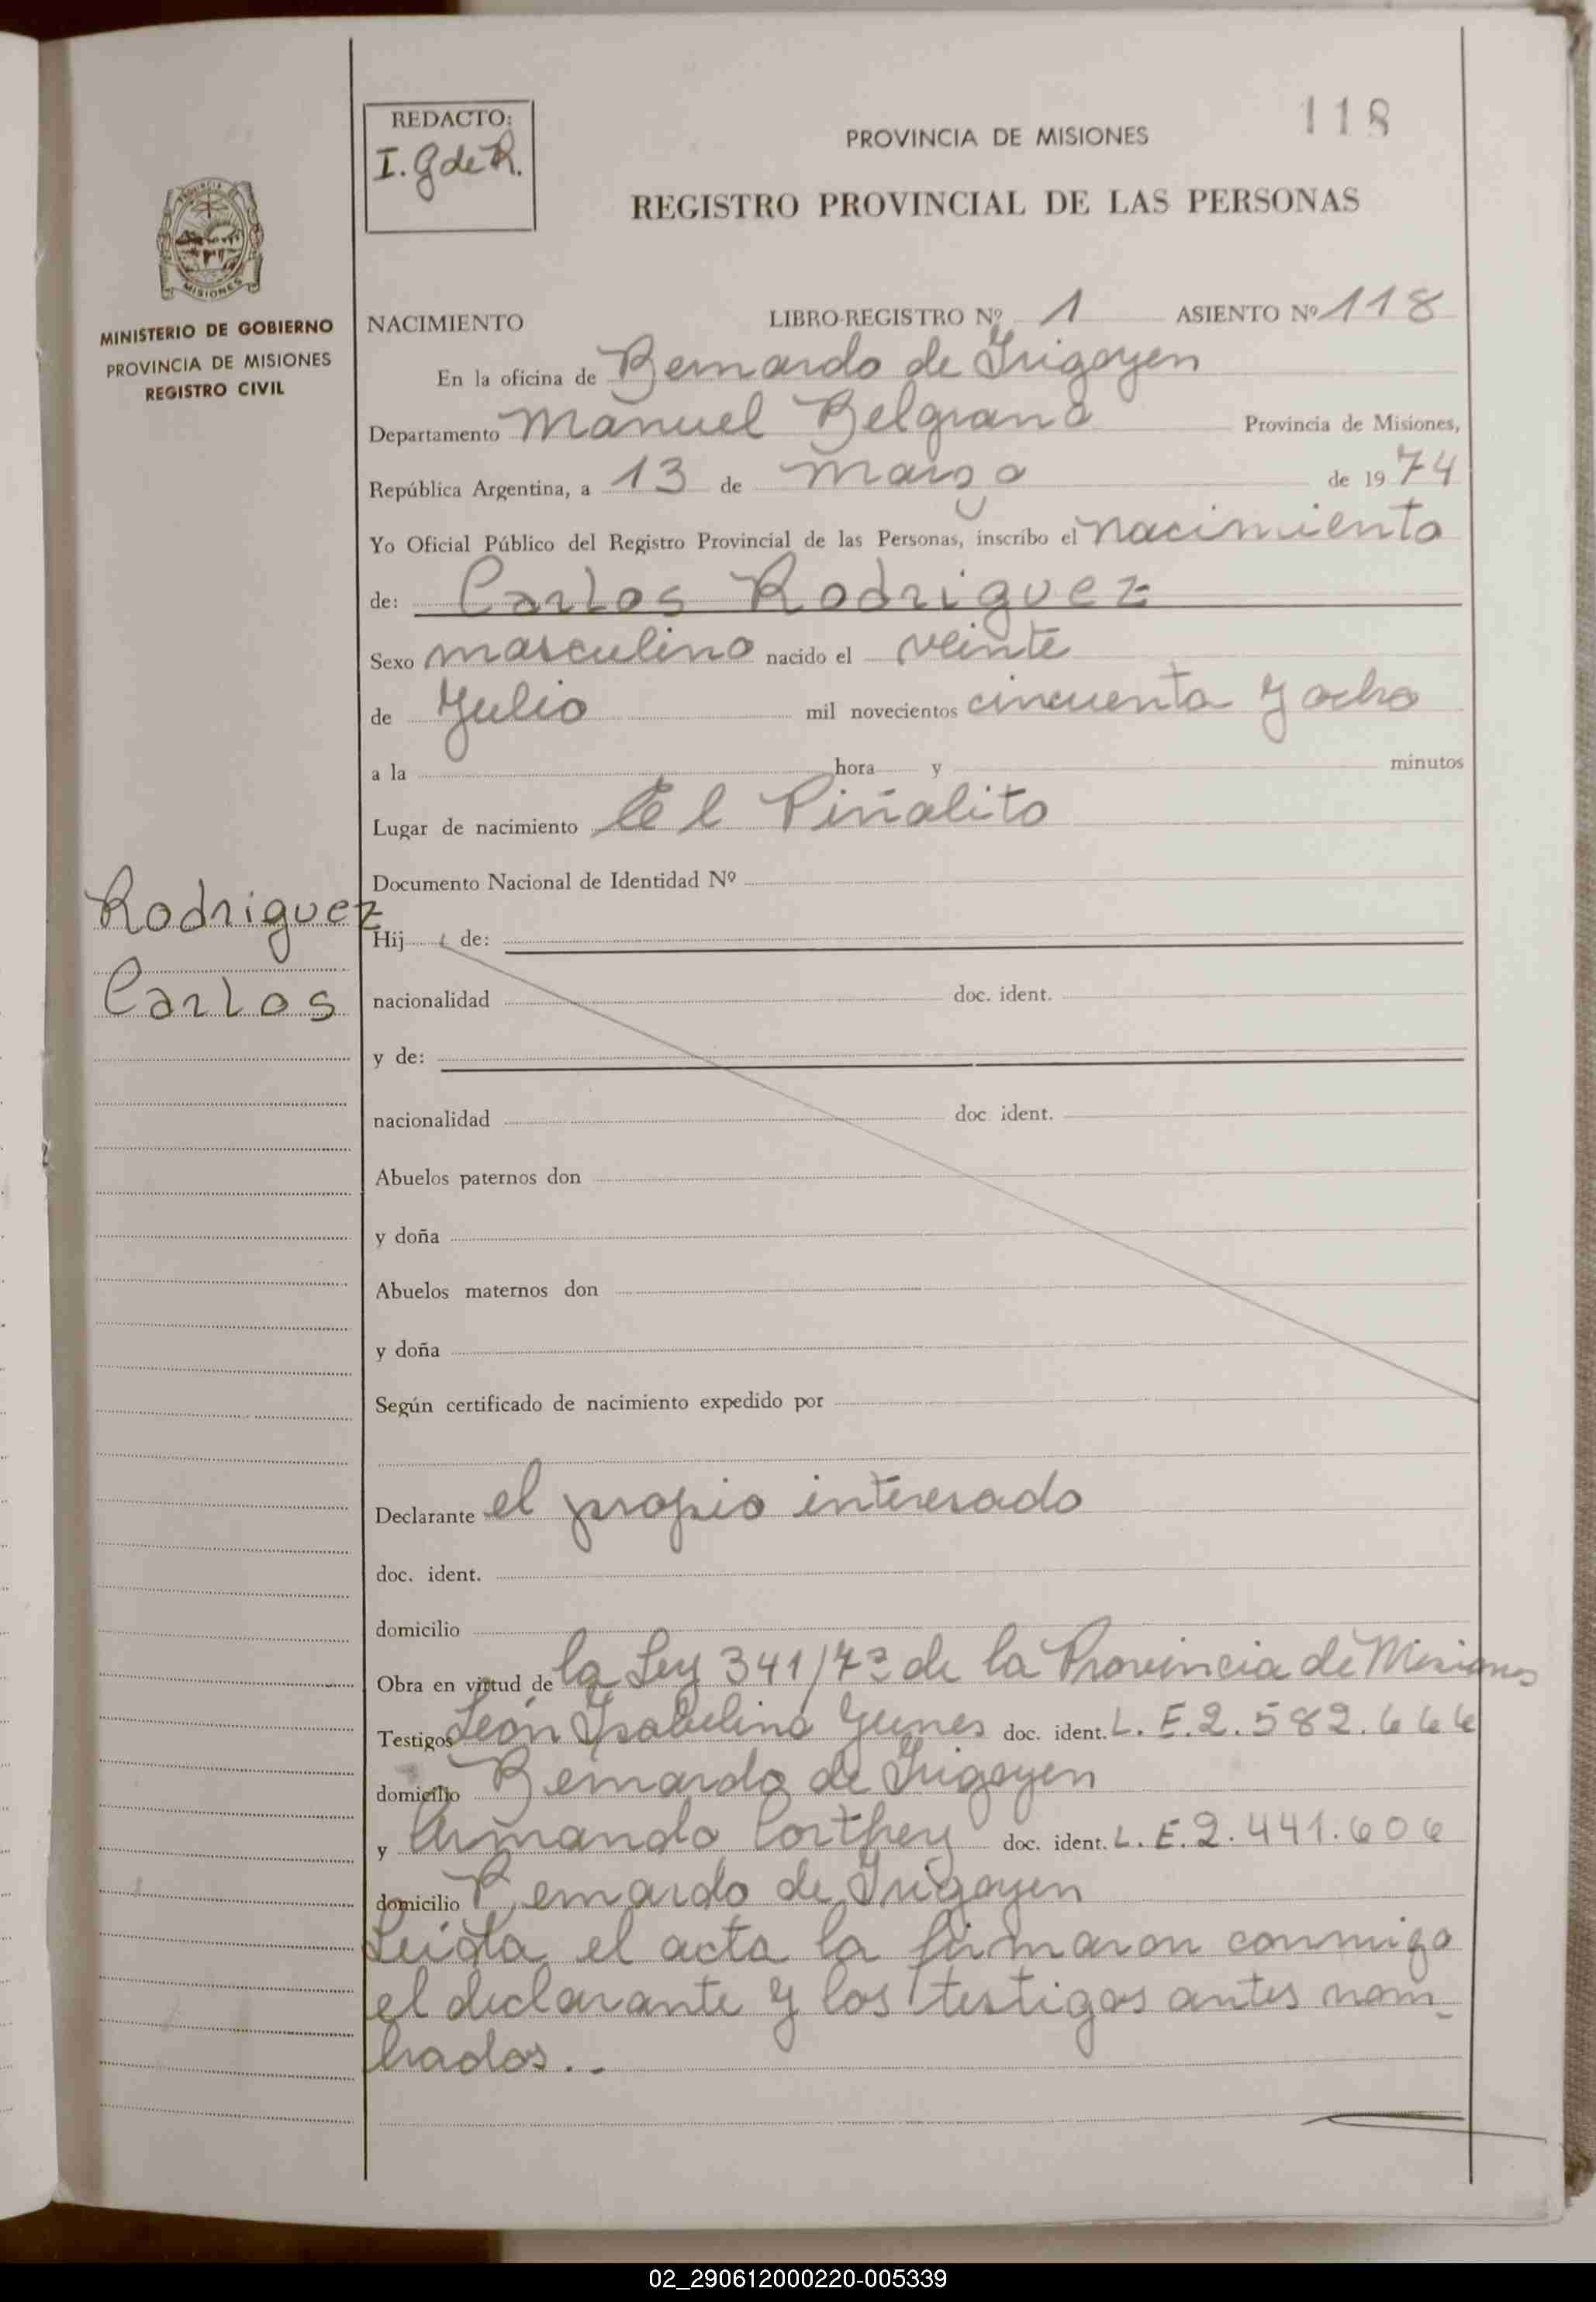 118
REDACTO:
I. G de R.
PROVINCIA DE MISIONES
REGISTRO PROVINCIAL DE LAS PERSONAS
MISIONES
MINISTERIO DE GOBIERNO
PROVINCIA DE MISIONES
REGISTRO CIVIL
NACIMIENTO LIBRO-REGISTRO Nº 1 ASIENTO Nº 118
En la oficina de Bernardo de Irigoyen
Departamento Manuel Belgrano Provincia de Misiones,
República Argentina, a 13 de marzo de 1974
Yo Oficial Público del Registro Provincial de las Personas, inscribo el nacimiento
de: Carlos Rodriguez
Sexo masculino nacido el veinte
de Julio mil novecientos cincuenta y ocho
a la hora y minutos
Lugar de nacimiento El Piñalito
Documento Nacional de Identidad Nº
Rodriguez
Carlos
Hij de:
nacionalidad doc. ident.
y de:
nacionalidad doc. ident.
Abuelos paternos don
y doña
Abuelos maternos don
y doña
Según certificado de nacimiento expedido por
Declarante el propio interesado
doc. ident.
domicilio
Obra en virtud de la Ley 341/7ª de la Provincia de Misiones
Testigos León Isabelino doc. ident. L. E. 2.582.666
domicilio Bernardo de Irigoyen
y Armando doc. ident. L. E. 2.441.606
domicilio Bernardo de Irigoyen
Leida el acta la firmaron conmigo
el declarante y los testigos antes nom-
brados..
02_290612000220-005339